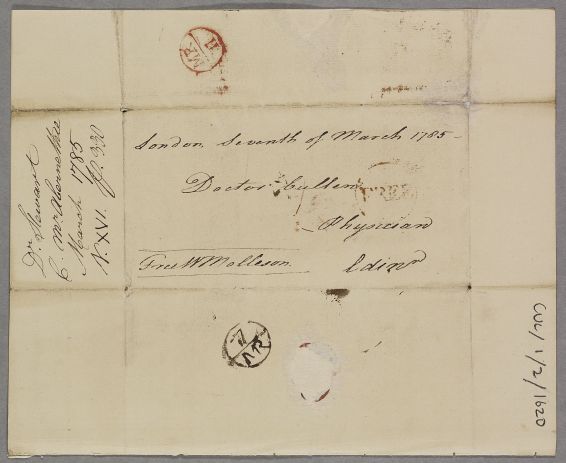 MR 11
London Seventh of March 1785
Doctor Cullen
FREE
Physician
Free W Molleson
Edinr
MR 7
Dr. Stewart
C. Mr Abernethie
March 1785
N. XVI. p. 330
CUL/1/2/1620